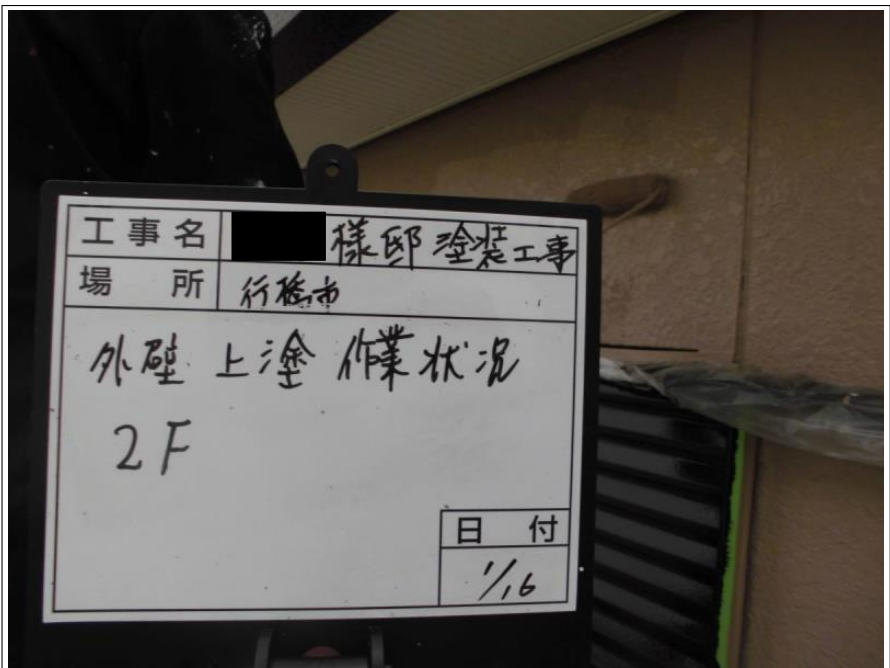 工事名 様邸塗装工事
場所 行橋市
外壁上塗作業状況
2F
日付
1/16